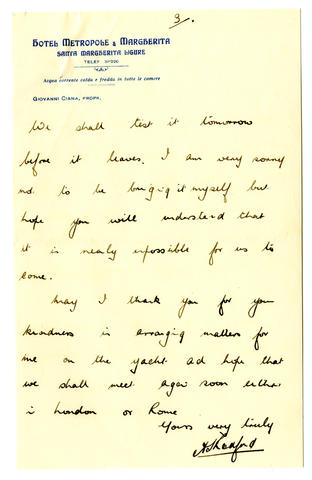 3/.
HOTEL METROPOLE & MARGHERITA
SANTA MARGHERITA LIGURE
TELEF
Acqua corrente calda e fredda in tutte le camere
GIOVANNI CIANA, PROPR.
We shall test it tomorrow
before it leaves. I am very sorry
not to be bringing it myself but
hope you will understand that
it is nearly impossible for us to
come.
May I thank you for your
kindness in arranging matters for
me on the yacht and hope that
we shall meet again soon either
in London or Rome
Yours very truly